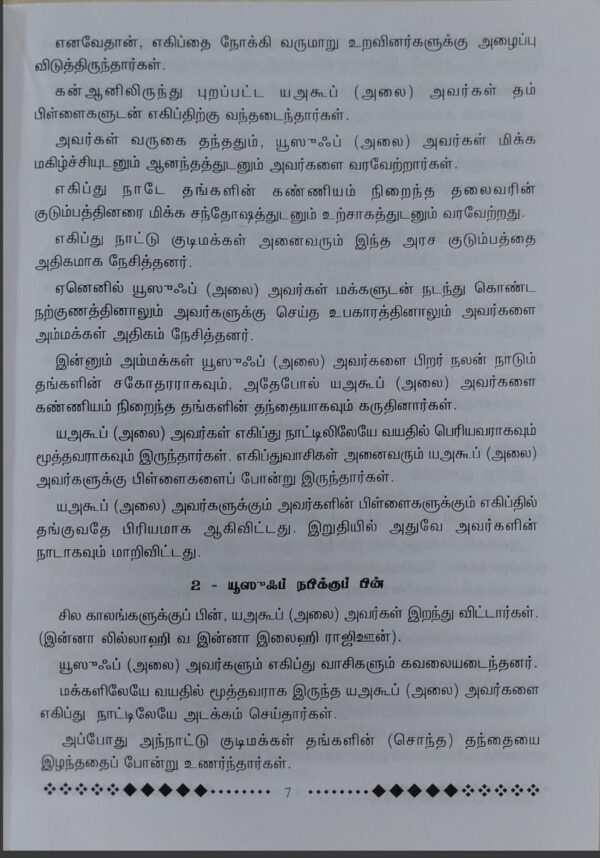 எனவேதான், எகிப்தை நோக்கி வருமாறு உறவினர்களுக்கு அழைப்பு
விடுத்திருந்தார்கள்.
கன்ஆனிலிருந்து புறப்பட்ட யஅகூப் (அலை) அவர்கள் தம்
பிள்ளைகளுடன் எகிப்திற்கு வந்தடைந்தார்கள்.
அவர்கள் வருகை தந்ததும், யூஸுஃப் (அலை) அவர்கள் மிக்க
மகிழ்ச்சியுடனும் ஆனந்தத்துடனும் அவர்களை வரவேற்றார்கள்.
எகிப்து நாடே தங்களின் கண்ணியம் நிறைந்த தலைவரின்
குடும்பத்தினரை மிக்க சந்தோஷத்துடனும் உற்சாகத்துடனும் வரவேற்றது.
எகிப்து நாட்டு குடிமக்கள் அனைவரும் இந்த அரச குடும்பத்தை
அதிகமாக நேசித்தனர்.
ஏனெனில் யூஸுஃப் (அலை) அவர்கள் மக்களுடன் நடந்து கொண்ட
நற்குணத்தினாலும் அவர்களுக்கு செய்த உபகாரத்தினாலும் அவர்களை
அம்மக்கள் அதிகம் நேசித்தனர்.
இன்னும் அம்மக்கள் யூஸுஃப் (அலை) அவர்களை பிறர் நலன் நாடும்
தங்களின் சகோதரராகவும், அதேபோல் யஅகூப் (அலை) அவர்களை
கண்ணியம் நிறைந்த தங்களின் தந்தையாகவும் கருதினார்கள்.
யஅகூப் (அலை) அவர்கள் எகிப்து நாட்டிலிலேயே வயதில் பெரியவராகவும்
மூத்தவராகவும் இருந்தார்கள். எகிப்துவாசிகள் அனைவரும் யஅகூப் (அலை)
அவர்களுக்கு பிள்ளைகளைப் போன்று இருந்தார்கள்.
யஅகூப் (அலை) அவர்களுக்கும் அவர்களின் பிள்ளைகளுக்கும் எகிப்தில்
தங்குவதே பிரியமாக ஆகிவிட்டது. இறுதியில் அதுவே அவர்களின்
நாடாகவும் மாறிவிட்டது.
2 - யூஸுஃப் நபிக்குப் பின்
சில காலங்களுக்குப் பின், யஅகூப் (அலை) அவர்கள் இறந்து விட்டார்கள்.
(இன்னா லில்லாஹி வ இன்னா இலைஹி ராஜிஊன்).
யூஸுஃப் (அலை) அவர்களும் எகிப்து வாசிகளும் கவலையடைந்தனர்.
மக்களிலேயே வயதில் மூத்தவராக இருந்த யஅகூப் (அலை) அவர்களை
எகிப்து நாட்டிலேயே அடக்கம் செய்தார்கள்.
அப்போது அந்நாட்டு குடிமக்கள் தங்களின் (சொந்த) தந்தையை
இழந்ததைப் போன்று உணர்ந்தார்கள்.
7